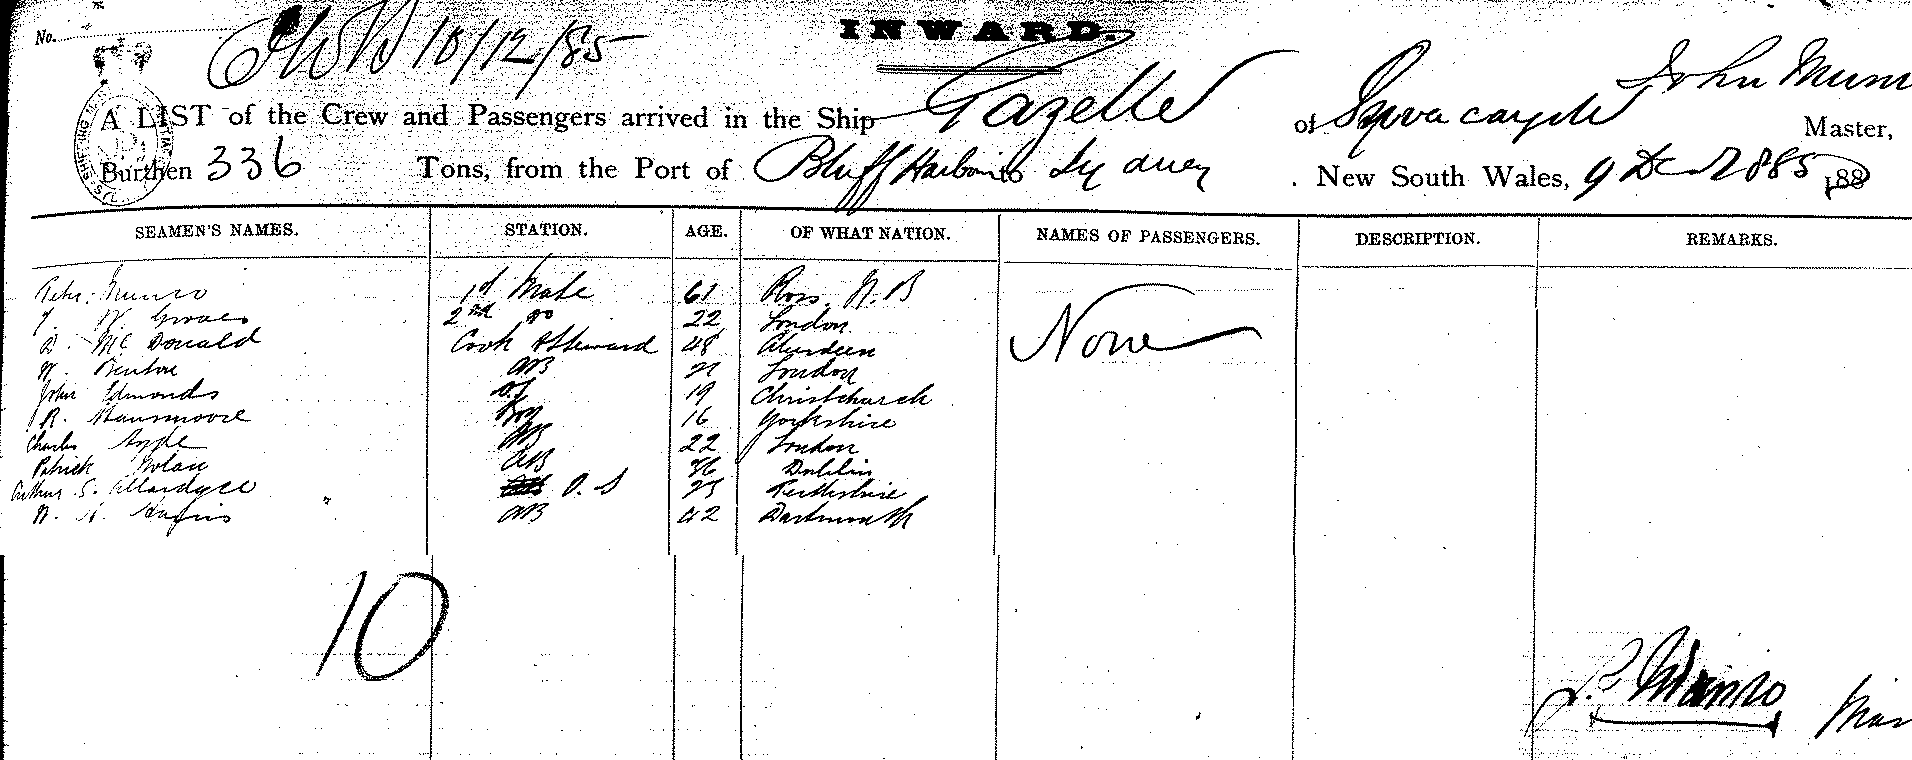 No.
10/12/85
INWARD.
John Munro
A LIST of the Crew and Passengers arrived in the Ship Gazelle of Master,
Burthen 336 Tons, from the Port of Bluff Harbour to Sydney New South Wales, 9 Dec 1885 188
SEAMEN'S NAMES. STATION. AGE. OF WHAT NATION. NAMES OF PASSENGERS. DESCRIPTION. REMARKS.
Peter Munro 1st Mate 61 Ross. N.B
W 2nd do 22 London None
D. McDonald Cook & Steward 48 Aberdeen
W. AB 21 London
John Edmonds 19 Christchurch
R. Boy 16 Yorkshire
Charles AB 22 London
Patrick Nolan AB 36 Dublin
Arthur S. Allardyce O.S 25 Perthshire
W. H. AB 42 Dartmouth
10
Munro